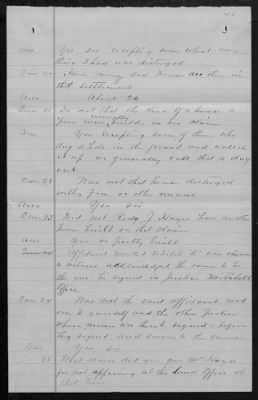 Ans Yes sir excepting some what
thing I had was destroyed
Ques 20 How many Sod Houses are there in
that Settlement
Ans About 20
Ques 21 Is not that the kind of a house a
generally on his claim
Ans Yes excepting some of them who
dig a hole in the ground and walled
it up we generally call that a dug
out
Ques 22 Was not that house destroyed
with fire or other means
Ans Yes Sir
Ques 23 Did not Rody J Hayes have another
house built on that claim
Ans Yes or partly built
Affidavit marked Exhibit "C" was shown
to witness acknowledged the same to be
the one he signed in Justice
Office
Ques 24 Was not the said affidavit read
over to yourself and the other parties
whose names are thereto signed before
they signed and swore to the same
Ans Yes Sir
25 What reason did you give Mr Hayes
for not appearing at the Land Office at
that time